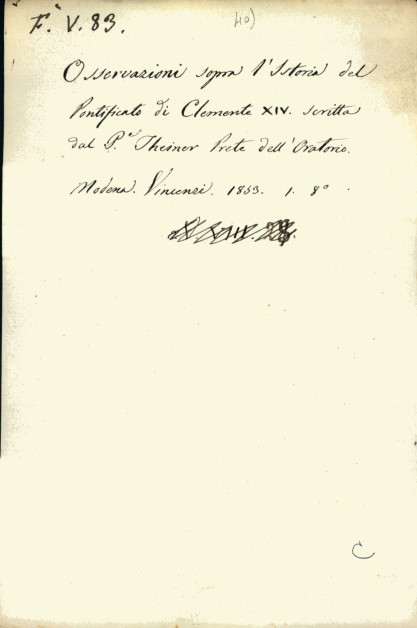 F. V. 83.
40)
Osservazioni sopra l'Istoria del
Pontificato di Clemente XIV. scritta
dal P.e Theiner Prete dell'Oratorio.
Modena. Vincenzi. 1853. 1. 8°.
C